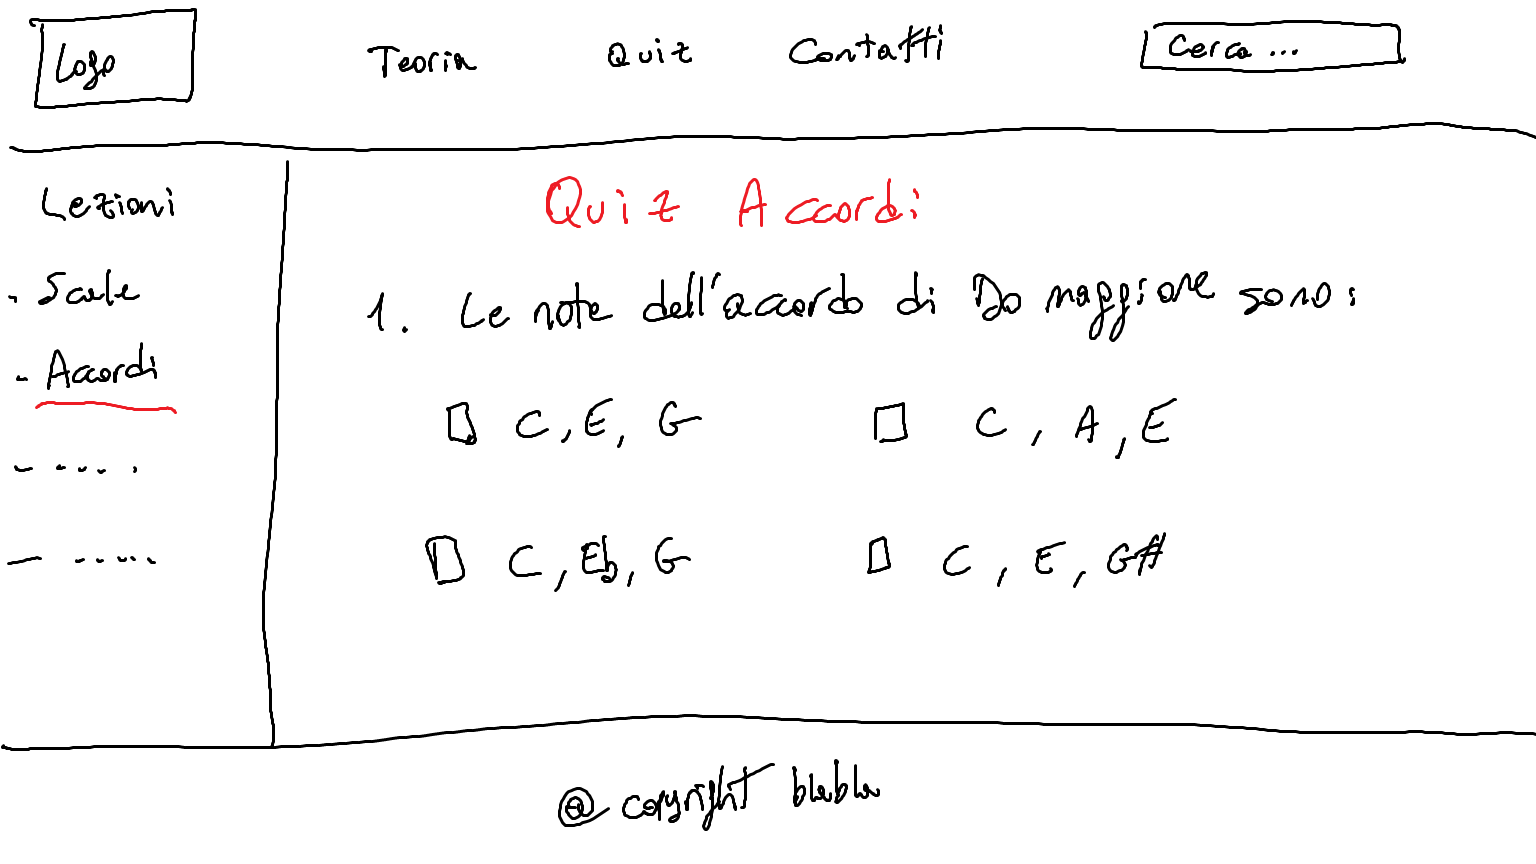 Logo Teoria Quiz Contatti Cerca ...
Lezioni
- Scale
- Accordi
- .....
- .....
Quiz Accordi
1. Le note dell'accordo di Do maggiore sono:
C, E, G
C, A, E
C, Eb, G
C, E, G#
@ copyright blabla